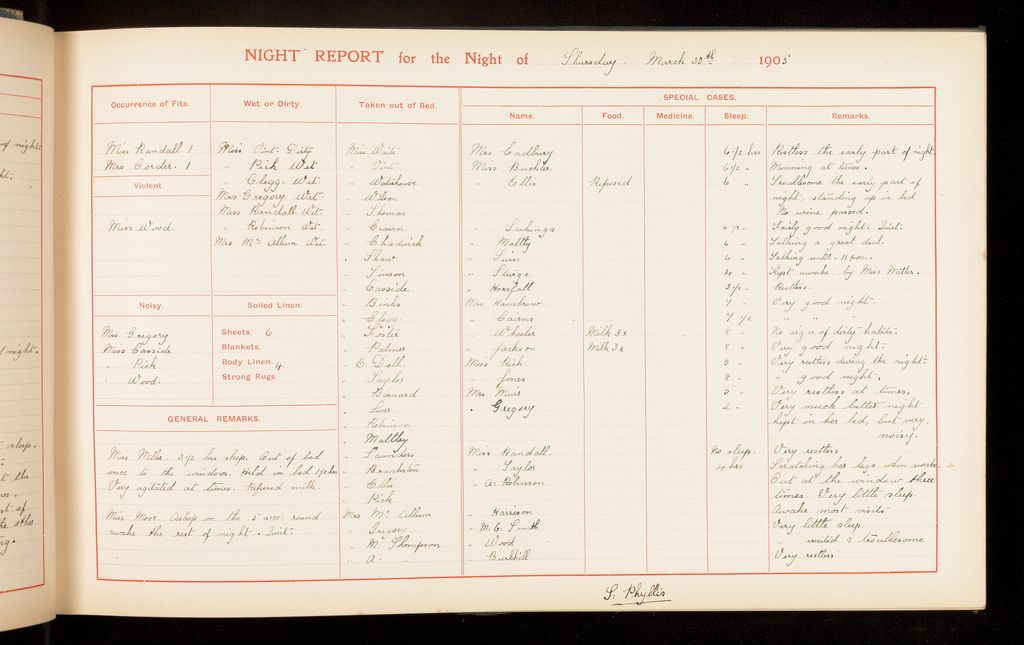 NIGHT REPORT for the Night of Thursday March 30th 1905
Occurrence of Fits.
Miss Randall 1
Mrs Corder. 1
Violent.
Miss Wood.
Noisy.
Mrs Gregory
Miss Casside
" Pick
" Wood.
Wet or Dirty.
Miss Vint. Dirty
" Pick Wet
" Clegg. Wet
Mrs Gregory Wet.
Miss Randall Wet.
" Robinson Wet.
Mrs Mc Allum Wet.
Soiled Linen.
Sheets 6
Blankets.
Body Linen. 4
Strong Rugs.
GENERAL REMARKS.
Miss Miller. 3 1/2 hrs sleep. Out of bed
once to the window. Held in bed 1 1/2 hrs
Very agitated at times. Refused milk.
Miss Moor. Asleep on the 5 a.m. round
awake the rest of night. Quiet.
Taken out of Bed.
Miss Waite
" Vint
" Waterhouse
" Wilson
" Thomas
" Craven
" Chadwick
" Shaw
" Simson
" Casside
" Binks
" Clegg.
" Foster
" Palmer
" E. Dell.
" Taylor
" Barnard
" Liver
" Robinson
" Maltley
" Saunders
" Brankston
" Ellis
" Pick
Mrs Mc Allum
" Gregory
" M. Thompson
" A " "
SPECIAL CASES.
Name. Food. Medicine. Sleep. Remarks.
Mrs Cadbury 6 1/2 hrs Restless the early part of night.
Miss Buckle. 6 1/2 " Moaning at times.
" Ellis Refused 6 " Troublesome the early part of
night, standing up in bed
No urine passed.
" Jickings 6 1/2 " Fairly good night. Quiet.
" Maltly 6 " Talking a great deal.
" Swin 6 " Talking until 11 p.m.
" Sturge 4 " Kept awake by Miss Miller.
" Horsfall 3 1/2 " Restless.
Mrs Hansbrow. 7 " Very good night.
" Cairns 7 1/2 " " "
" Wheeler Milk 3x 8 " No sign of dirty habits.
" Jackson Milk 3x 8 " Very good night.
Miss Pick 5 " Very restless during the night.
" Jones 8 " " good night.
Mrs Muir 5 " Very restless at times.
" Gregory 2 " Very much better night
kept in her bed, but very
noisy.
Miss Randall. No sleep. Very restless
" Taylor 4 hrs Scratching her legs when awake.
" A. Robinson Out at the window three
times. Very little sleep.
" Harrison Awake most visits
" M. E. Smith Very little sleep
" Wood " excited & troublesome
" Burkhill Very restless
S. Phyllis